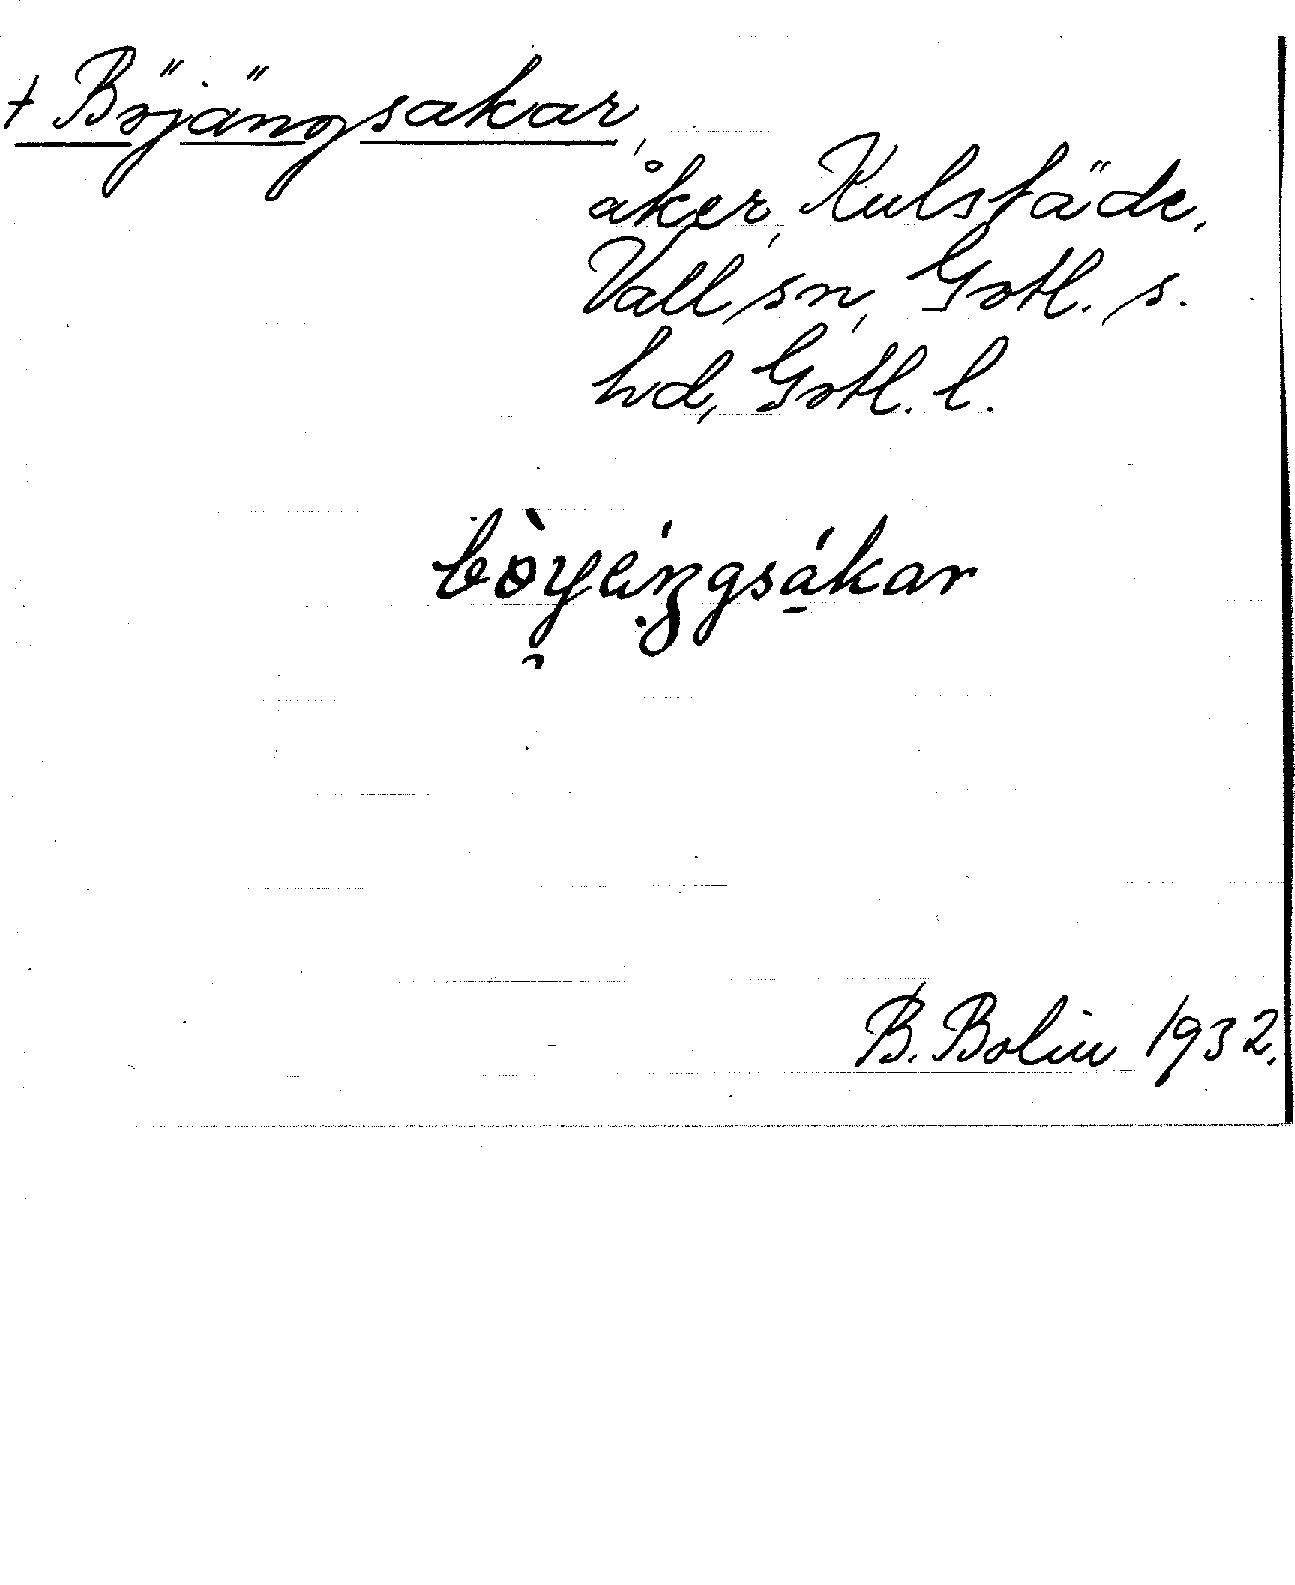 + Böjängsakar,
åker, Kulstäde,
Vall sn, Gotl. s.
hd, Gotl. l.
B. Bolin 1932.